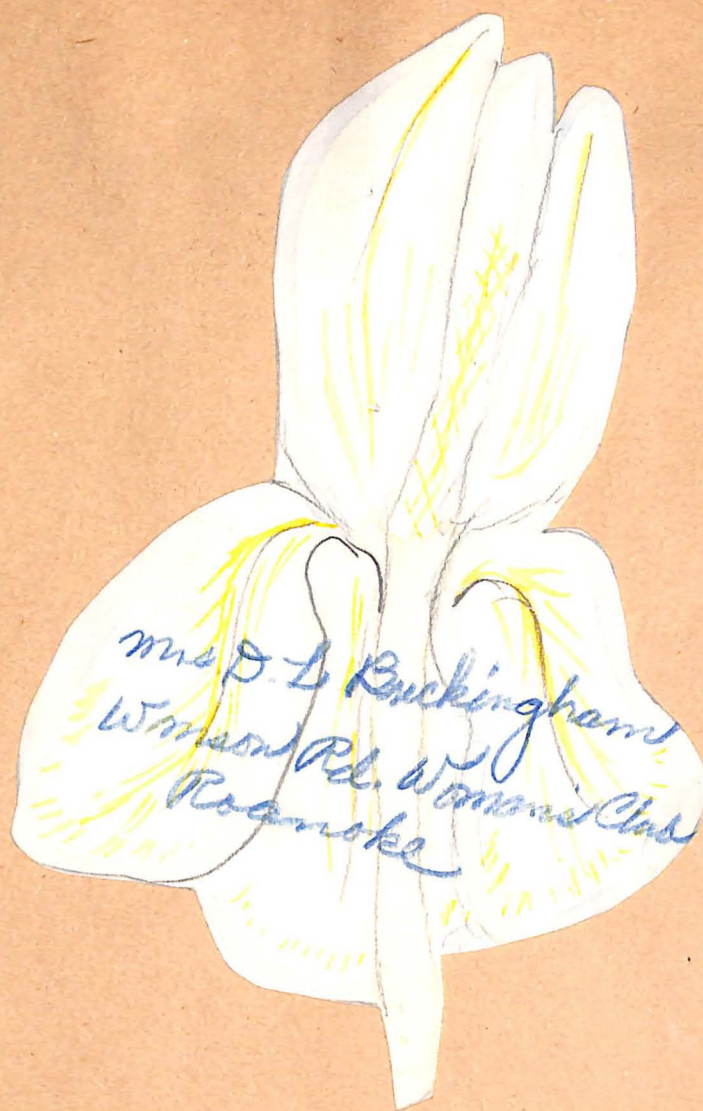 Mrs D. L. Buckingham
Wmson Rd. Woman's Club
Roanoke